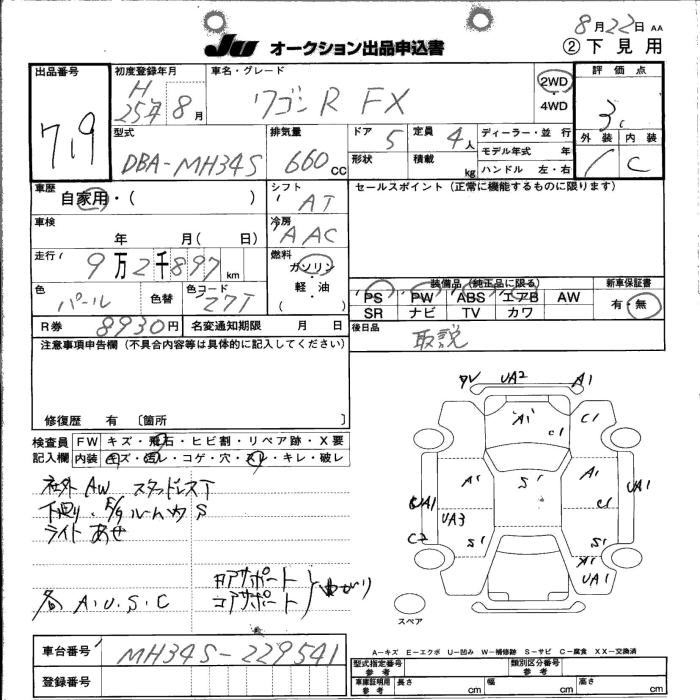 8月22日 AA
Ju オークション出品申込書 ②下見用
出品番号 初度登録年月 車名・グレード 評価点
719 H25年8月 ワゴンR FX 2WD 4WD 3
外装 内装
C
型式 排気量 ドア 5 定員 4人 ディーラー・並行
DBA-MH34S 660cc 形状 積載 kg モデル年式 年
ハンドル 左・右
車歴 シフト セールスポイント (正常に機能するものに限ります)
自家用・( ) AT
車検 冷房
年 月( 日) AAC
走行 燃料
9万2千897km ガソリン・軽油 ( )
装備品 (純正品に限る) 新車保証書
色 色替 色コード
パール Z7T
PS PW ABS エアB AW 有・無
SR ナビ TV カワ
R券 8930円 名変通知期限 月 日 後日品
取説
注意事項申告欄 (不具合内容等は具体的に記入してください)
修復歴 有 〔箇所 〕
検査員記入欄 FW キズ・飛石・ヒビ割・リペア跡・X要
内装 キズ・汚レ・コゲ・穴・スレ・キレ・破レ
社外AW スタッドレスT
下廻り・
ライトあせ
各A.U.S.C
コアサポート
UA2 A1
A1 C1
C1
A1 S1 A1
UA1 C1 UA1
UA3
C2 S1 S1
UA1
スペア
A-キズ E-エクボ U-凹み W-補修跡 S-サビ C-腐食 XX-交換済
車台番号 MH34S-229541
登録番号
型式指定番号 参考 類別区分番号 参考
車庫証明用 参考 長さ cm 幅 cm 高さ cm